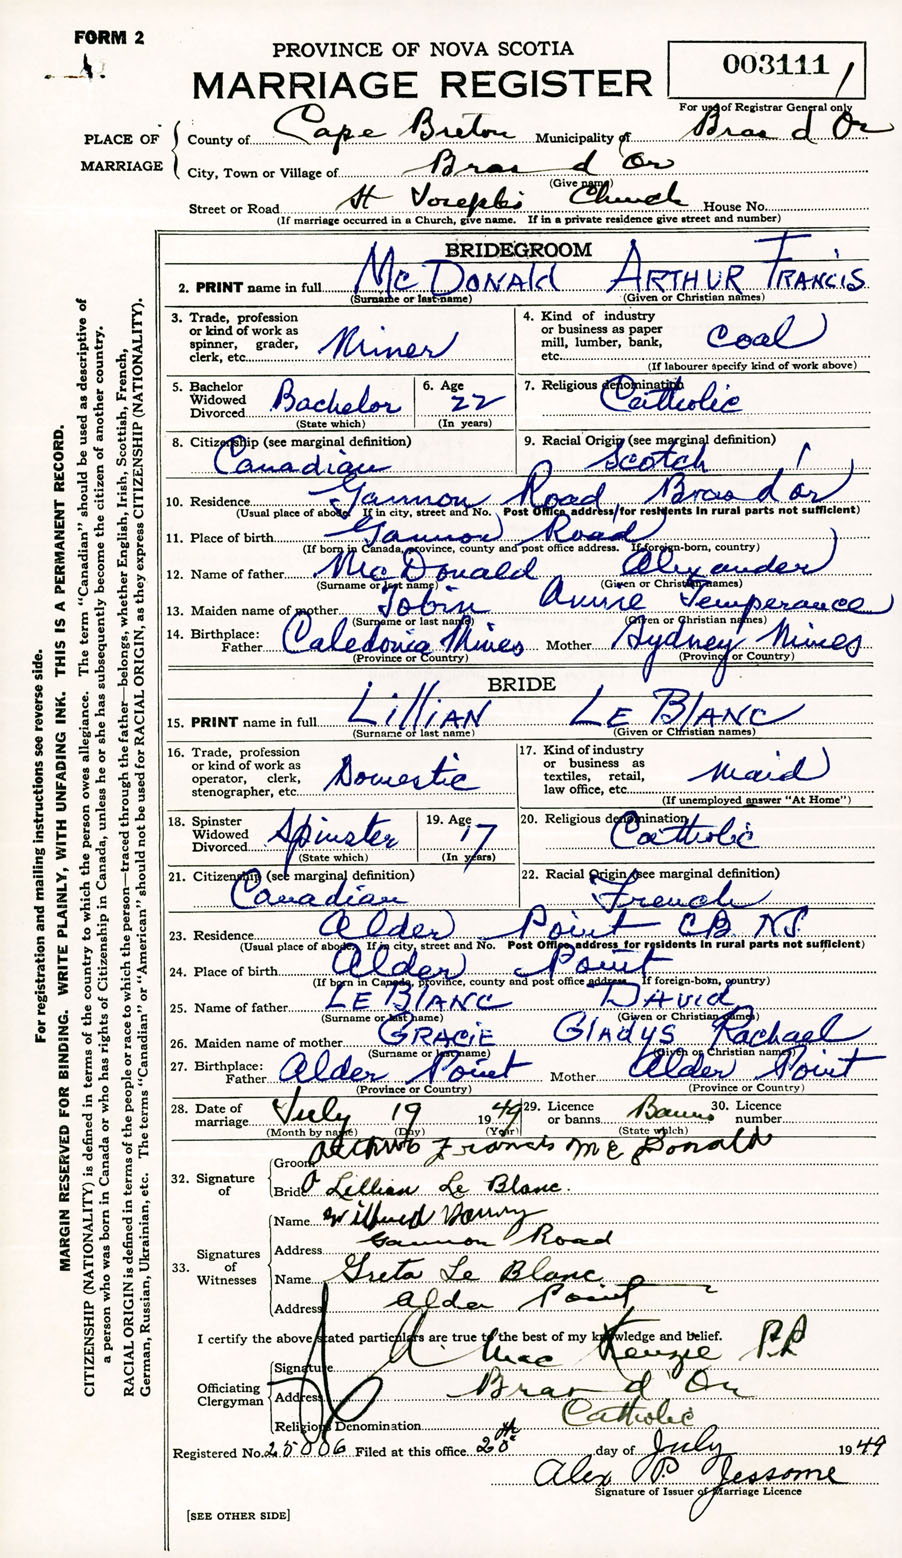 FORM 2
PROVINCE OF NOVA SCOTIA
MARRIAGE REGISTER
003111
For use of Registrar General only
PLACE OF MARRIAGE
County of Cape Breton Municipality of Bras d'Or
City, Town or Village of Bras d'Or
(Give name)
Street or Road St Joseph's Church House No.
(If marriage occurred in a Church, give name. If in a private residence give street and number)
BRIDEGROOM
2. PRINT name in full McDONALD ARTHUR FRANCIS
(Surname or last name) (Given or Christian names)
3. Trade, profession or kind of work as spinner, grader, clerk, etc. Miner
4. Kind of industry or business as paper mill, lumber, bank, etc. Coal
(If labourer specify kind of work above)
5. Bachelor Widowed Divorced Bachelor (State which)
6. Age 22 (In years)
7. Religious denomination Catholic
8. Citizenship (see marginal definition) Canadian
9. Racial Origin (see marginal definition) Scotch
10. Residence Gannon Road, Bras d'or
(Usual place of abode. If in city, street and No. Post Office address for residents in rural parts not sufficient)
11. Place of birth Gannon Road
(If born in Canada, province, county and post office address. If foreign-born, country)
12. Name of father McDonald Alexander
(Surname or last name) (Given or Christian names)
13. Maiden name of mother Tobin Annie Temperance
(Surname or last name) (Given or Christian names)
14. Birthplace: Father Caledonia Mines Mother Sydney Mines
(Province or Country) (Province or Country)
BRIDE
15. PRINT name in full LilliAN LE BLANC
(Surname or last name) (Given or Christian names)
16. Trade, profession or kind of work as operator, clerk, stenographer, etc. Domestic
17. Kind of industry or business as textiles, retail, law office, etc. maid
(If unemployed answer "At Home")
18. Spinster Widowed Divorced Spinster (State which)
19. Age 17 (In years)
20. Religious denomination Catholic
21. Citizenship (see marginal definition) Canadian
22. Racial Origin (see marginal definition) French
23. Residence Alder Point CB NS
(Usual place of abode. If in city, street and No. Post Office address for residents in rural parts not sufficient)
24. Place of birth Alder Point
(If born in Canada, province, county and post office address. If foreign-born, country)
25. Name of father LE BLANC DAVID
(Surname or last name) (Given or Christian names)
26. Maiden name of mother GRACIE GLADYS Rachael
(Surname or last name) (Given or Christian names)
27. Birthplace: Father Alder Point Mother Alder Point
(Province or Country) (Province or Country)
28. Date of marriage July 19 1949 29. Licence or banns Banns 30. Licence number
(Month by name) (Day) (Year) (State which)
32. Signature of
Groom Arthur Francis McDonald
Bride Lillian Le Blanc.
33. Signatures of Witnesses
Name Wilfred
Address Gannon Road
Name Greta Le Blanc
Address Alder Point
I certify the above stated particulars are true to the best of my knowledge and belief.
Officiating Clergyman
Signature A. Mac Kenzie P.P.
Address Bras d'Or
Religious Denomination Catholic
Registered No. 25006 Filed at this office 20th day of July 1949
Alex P. Jessome
Signature of Issuer of Marriage Licence
[SEE OTHER SIDE]
For registration and mailing instructions see reverse side.
MARGIN RESERVED FOR BINDING. WRITE PLAINLY, WITH UNFADING INK. THIS IS A PERMANENT RECORD.
CITIZENSHIP (NATIONALITY) is defined in terms of the country to which the person owes allegiance. The term "Canadian" should be used as descriptive of
a person who was born in Canada or who has rights of Citizenship in Canada, unless he or she has subsequently become the citizen of another country.
RACIAL ORIGIN is defined in terms of the people or race to which the person—traced through the father—belongs, whether English, Irish, Scottish, French,
German, Russian, Ukrainian, etc. The terms "Canadian" or "American" should not be used for RACIAL ORIGIN, as they express CITIZENSHIP (NATIONALITY).